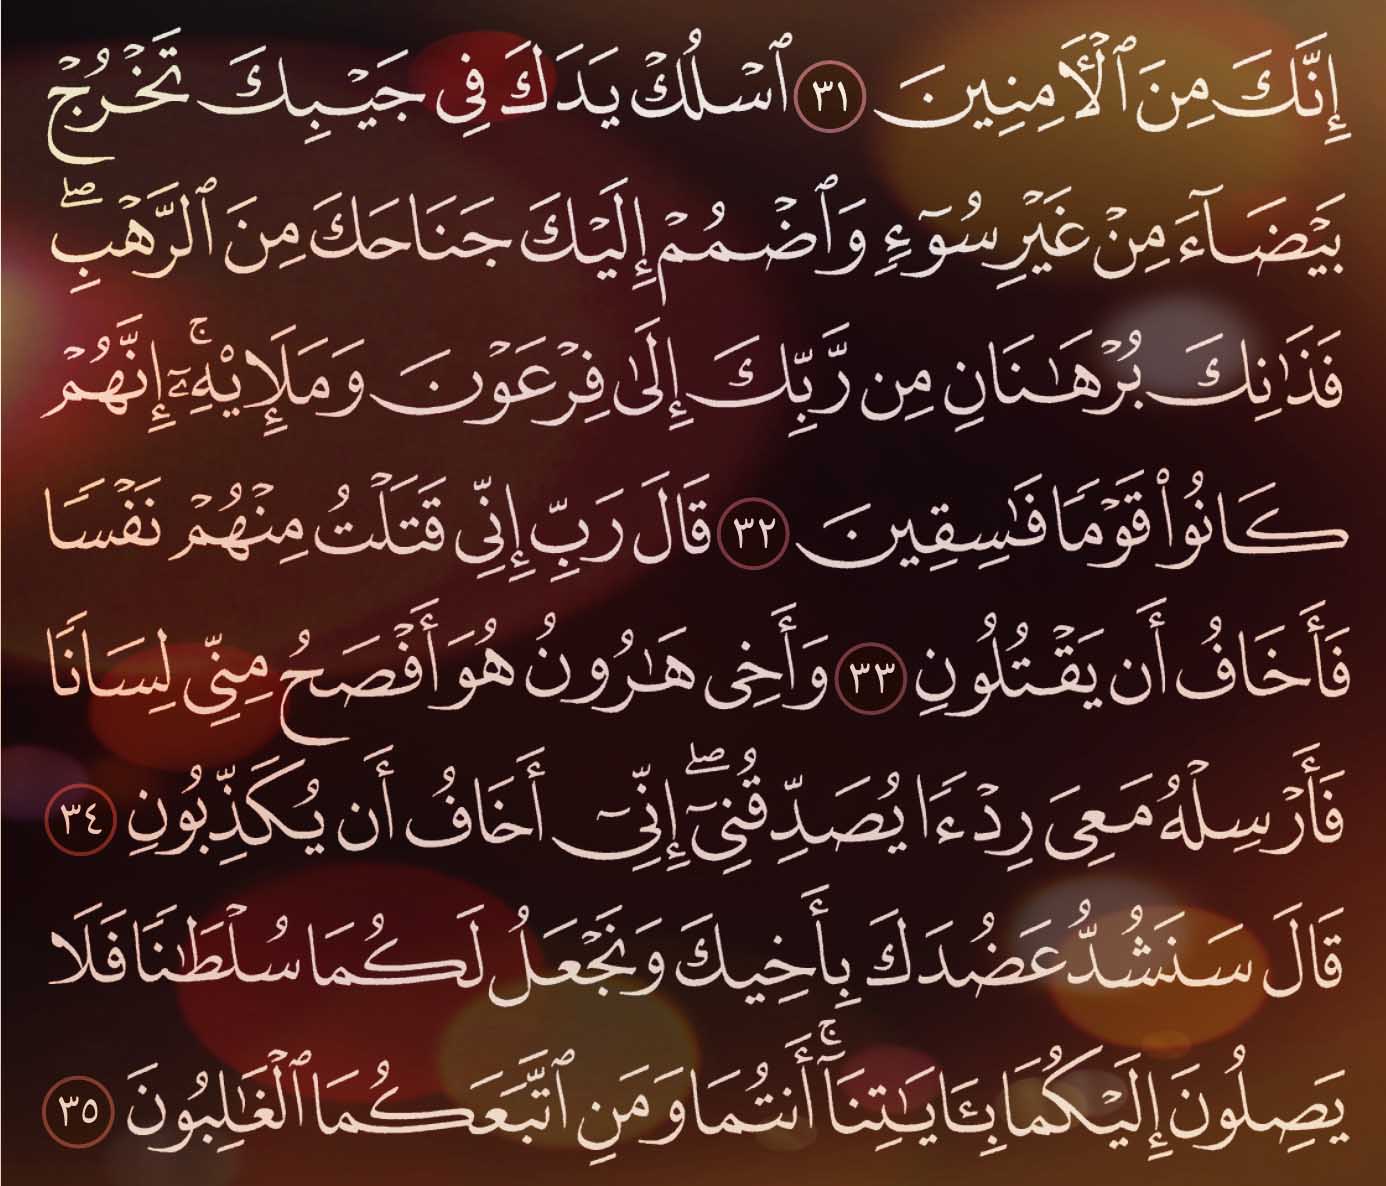 إِنَّكَ مِنَ ٱلْأَمِنِينَ ٣١ ٱسْلُكْ يَدَكَ فِى جَيْبِكَ تَخْرُجْ
بَيْضَآءَ مِنْ غَيْرِ سُوٓءٍ وَٱضْمُمْ إِلَيْكَ جَنَاحَكَ مِنَ ٱلرَّهْبِ ۖ
فَذَٰنِكَ بُرْهَـٰنَانِ مِن رَّبِّكَ إِلَىٰ فِرْعَوْنَ وَمَلَإِي۟هِۦٓ ۚ إِنَّهُمْ
كَانُوا۟ قَوْمًا فَـٰسِقِينَ ٣٢ قَالَ رَبِّ إِنِّى قَتَلْتُ مِنْهُمْ نَفْسًا
فَأَخَافُ أَن يَقْتُلُونِ ٣٣ وَأَخِى هَـٰرُونُ هُوَ أَفْصَحُ مِنِّى لِسَانًا
فَأَرْسِلْهُ مَعِىَ رِدْءًا يُصَدِّقُنِىٓ ۖ إِنِّىٓ أَخَافُ أَن يُكَذِّبُونِ ٣٤
قَالَ سَنَشُدُّ عَضُدَكَ بِأَخِيكَ وَنَجْعَلُ لَكُمَا سُلْطَـٰنًا فَلَا
يَصِلُونَ إِلَيْكُمَا بِـَٔايَـٰتِنَآ ۚ أَنتُمَا وَمَنِ ٱتَّبَعَكُمَا ٱلْغَـٰلِبُونَ ٣٥